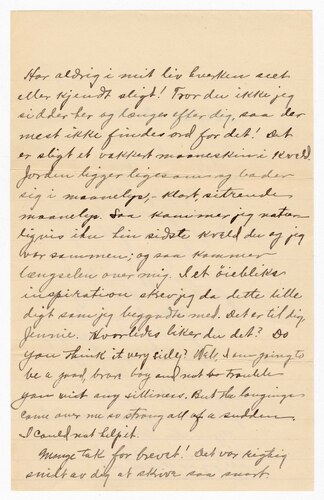 Har aldrig i mit liv hverken seet
eller kjendt sligt! Tror du ikke jeg
sidder her og længes efter dig, saa der
mest ikke findes ord for det! Det
er sligt et vakkert maaneskin i kveld.
Jorden ligger ligesom og bader
sig i maanelys, - klart, sitrende
maanelys. Saa kommer jeg natur-
ligvis ihu hin sidste kveld du og jeg
var sammen; og saa kommer
længselen over mig. I et øiebliks
inspiration skrev jeg da dette lille
digt som jeg begyndte med. Det er til dig,
Jennie. Hvorledes liker du det? Do
you think it very silly? Well, I am going to
be a good, brave boy and not to trouble
you with any silliness. But the longings
came over me so strong all of a sudden,
I could not help it.
Mange tak for brevet! Det var rigtig
snildt av dig at skrive saa snart.